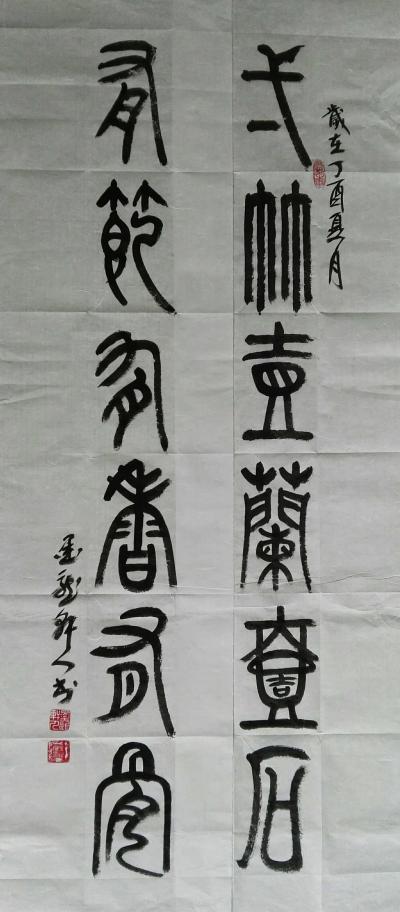 歲在丁酉夏月
弌竹壹蘭壹石
有節有香有骨
墨龍軒人书